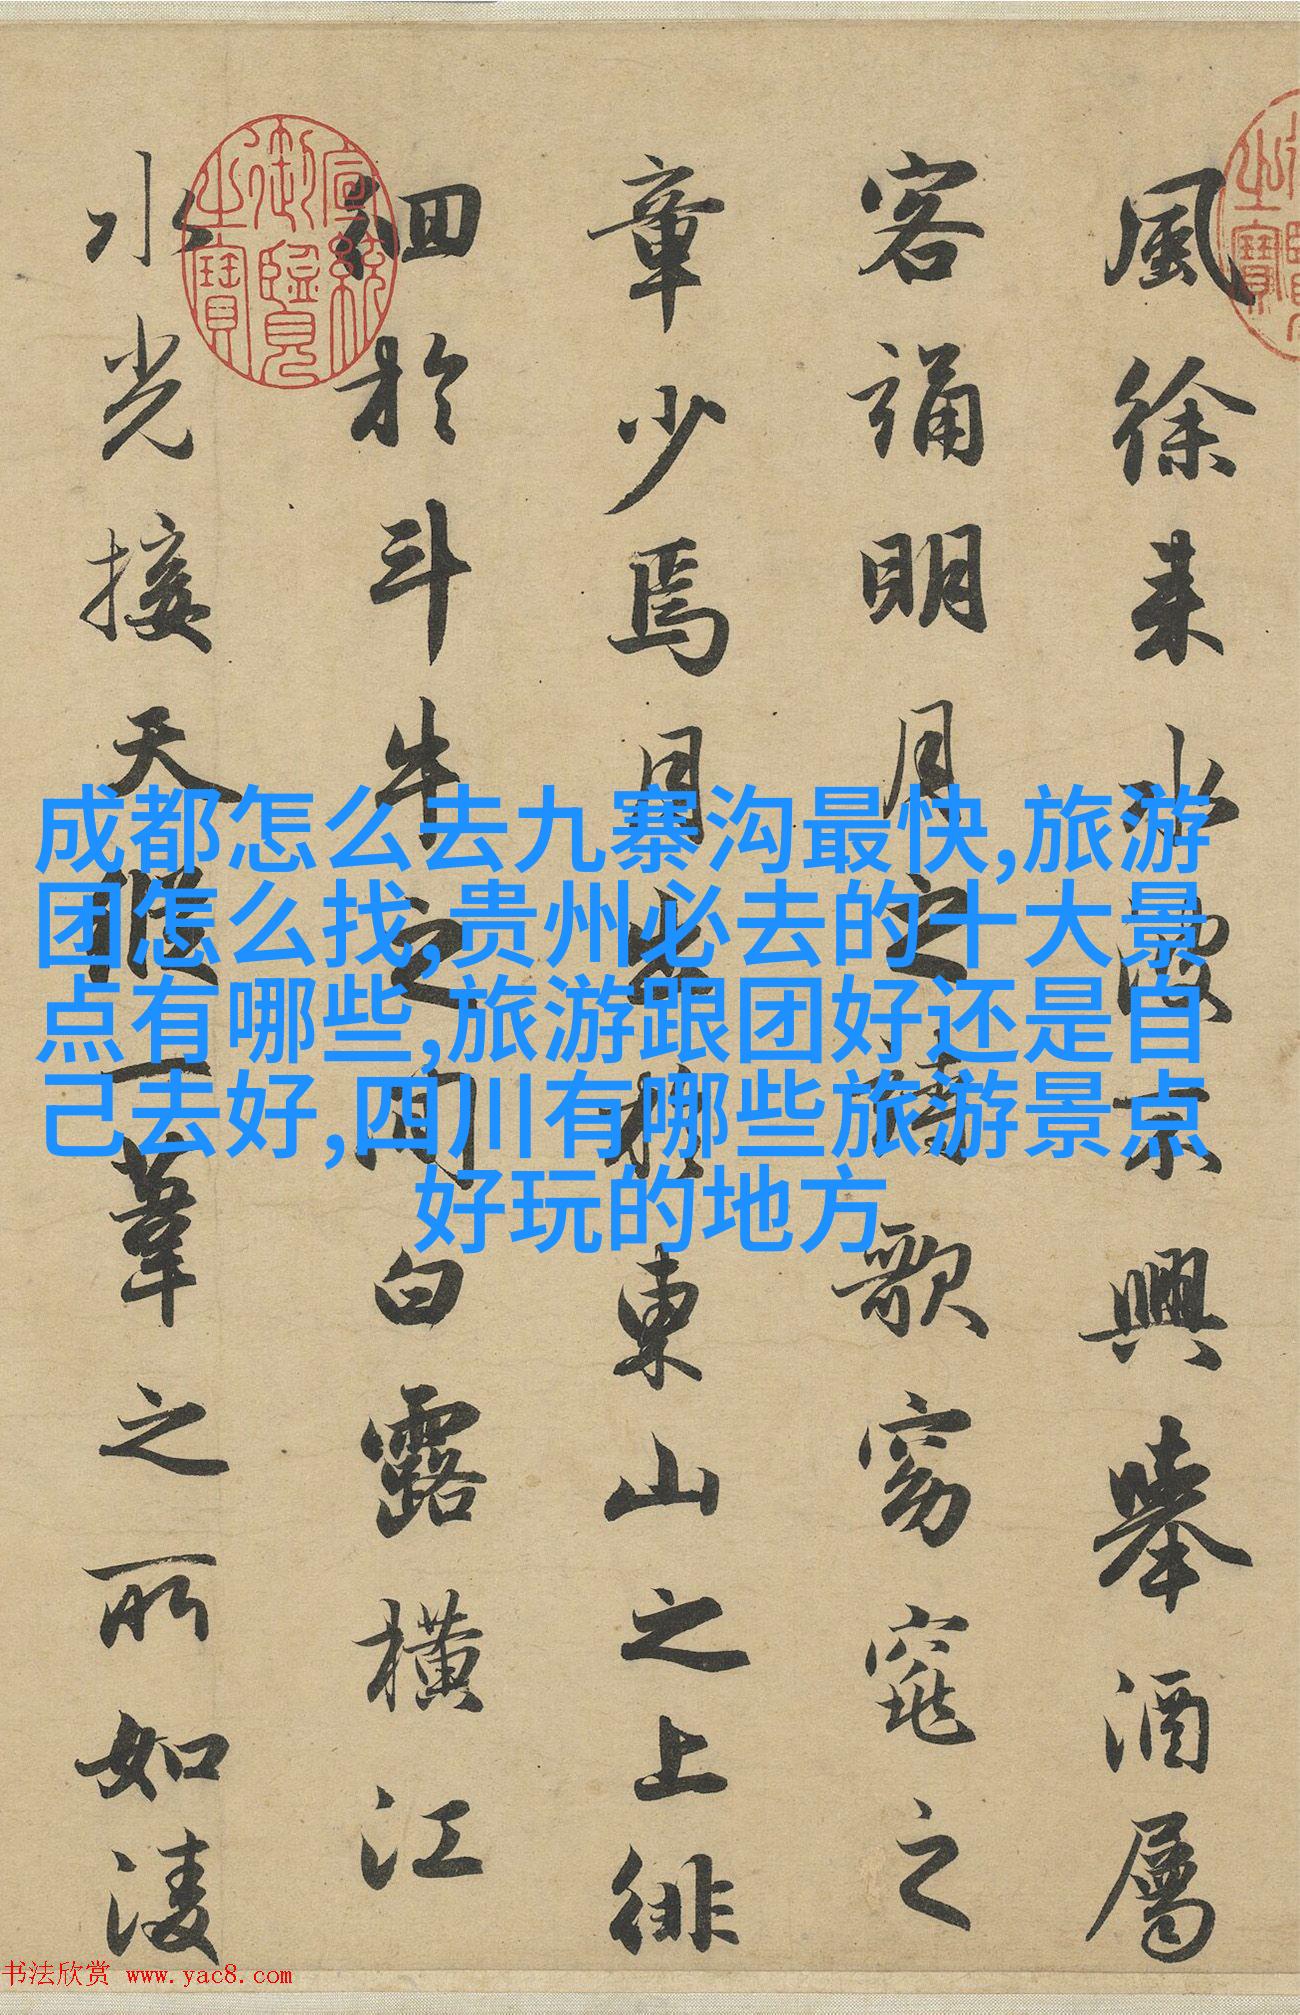 風徐来水波不興舉酒屬
客誦明月之詩歌窈窕之
章少焉月出於東山之上徘
徊於斗牛之間白露橫江
水光接天縱一葦之所如淩
宣統
御覽
之寶
成都怎么去九寨沟最快,旅游
团怎么找,贵州必去的十大景
点有哪些,旅游跟团好还是自
己去好,四川有哪些旅游景点
好玩的地方
书法欣赏 www.yac8.com